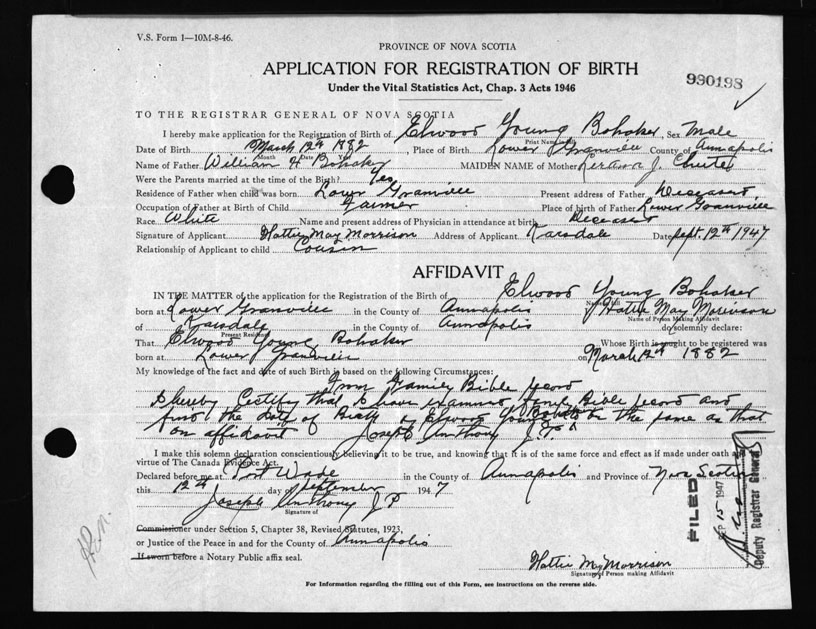 V.S. Form 1—10M-8-46.
PROVINCE OF NOVA SCOTIA
APPLICATION FOR REGISTRATION OF BIRTH
Under the Vital Statistics Act, Chap. 3 Acts 1946
990198
TO THE REGISTRAR GENERAL OF NOVA SCOTIA
I hereby make application for the Registration of Birth of Elwood Young Bohaker, Sex Male
Print Name in full
Date of Birth March 12th 1882, Place of Birth Lower Granville County of Annapolis
Month Date Year
Name of Father William H Bohaker MAIDEN NAME of Mother J. Chute
Were the Parents married at the time of Birth? Yes
Residence of Father when child was born Lower Granville Present address of Father Deceased
Occupation of Father at Birth of Child Farmer Place of birth of Father Lower Granville
Race White Name and present address of Physician in attendance at birth Deceased
Signature of Applicant Hattie May Morrison Address of Applicant Karsdale Date Sept. 12th 1947
Relationship of Applicant to child Cousin
AFFIDAVIT
IN THE MATTER of the application for the Registration of the Birth of Elwood Young Bohaker
Name in full
born at Lower Granville in the County of Annapolis I Hattie May Morrison
Name of Person Making Affidavit
of Karsdale in the County of Annapolis do solemnly declare:
Present Residence
That Elwood Young Bohaker Whose Birth is sought to be registered was
born at Lower Granville on March 12th 1882
My knowledge of the fact and date of such Birth is based on the following Circumstances:
From Family Bible record
I hereby Certify that I have examined family Bible record and
find the date of Birth of Elwood Young Bohaker to be the same as that
on affidavit Joseph Anthony J.P.
I make this solemn declaration conscientiously believing it to be true, and knowing that it is of the same force and effect as if made under oath and
virtue of The Canada Evidence Act.
Declared before me at Port Wade in the County of Annapolis and Province of Nova Scotia
this 12th day of September 1947
Joseph Anthony J P
Signature of
Commissioner under Section 5, Chapter 38, Revised Statutes, 1923,
or Justice of the Peace in and for the County of Annapolis
If sworn before a Notary Public affix seal.
Hattie May Morrison
Signature of Person making Affidavit
FILED
SEP 15 1947
Deputy Registrar General
For Information regarding the filling out of this Form, see instructions on the reverse side.